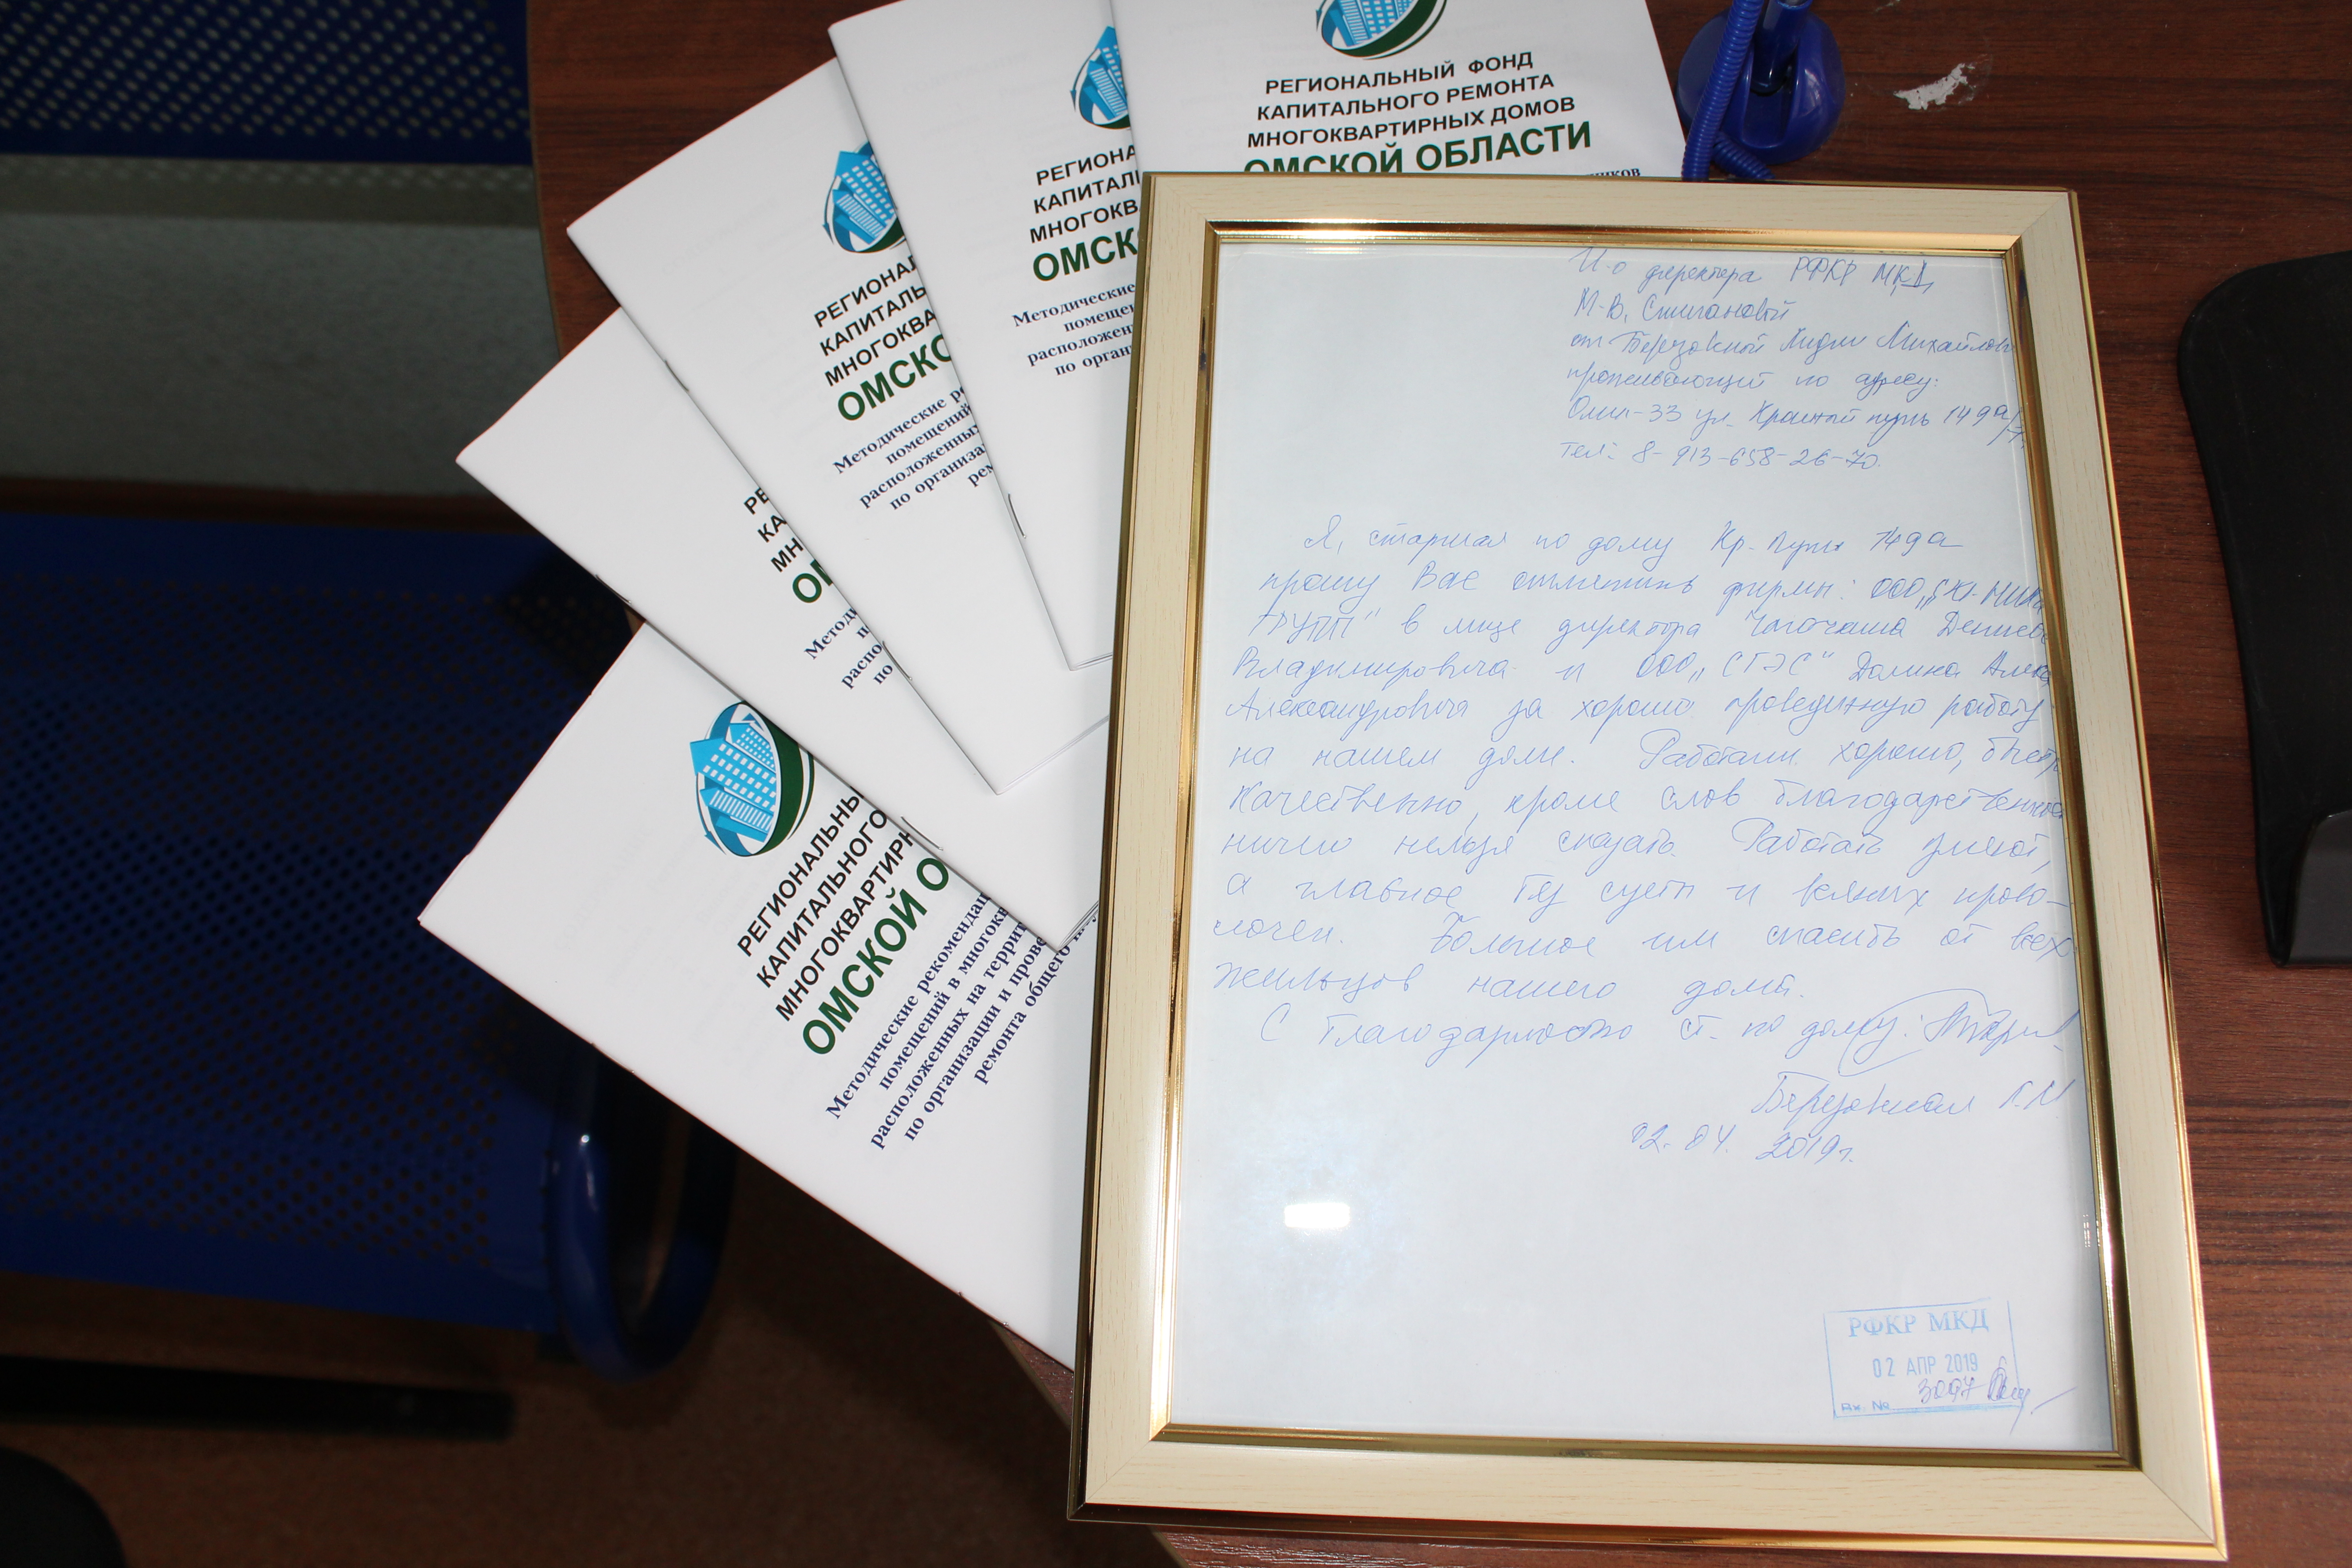 РЕГИОНАЛЬНЫЙ ФОНД
КАПИТАЛЬНОГО РЕМОНТА
МНОГОКВАРТИРНЫХ ДОМОВ
ОМСКОЙ ОБЛАСТИ
РЕГИОНА
КАПИТАЛ
МНОГОКВ
ОМСК
Методические
помеще
расположен
по орган
РЕГИОНАЛ
КАПИТАЛЬ
МНОГОКВА
ОМСКО
Методические р
помещений
расположенных
по организа
рем
РЕ
КА
МН
ОМ
Методи
распо
по
РЕГИОНАЛЬНЫ
КАПИТАЛЬНОГО
МНОГОКВАРТИРН
ОМСКОЙ О
Методические рекомендац
помещений в многокв
расположенных на террит
по организации и прове
ремонта общего
И.о директора РФКР МКД
М.В.
от Березовской Лидии Михайловн
проживающей по адресу:
Омск-33 ул. Красный путь 149а/
тел: 8-913-658-26-70.
Я, старшая по дому Кр. путь 149а
прошу Вас отметить фирмы: ООО „СК
ГРУПП" в лице директора Дениса
Владимировича и ООО „СГЭС"
Александровича за хорошо проведенную работу
на нашем доме. Работали хорошо, быстр
качественно, кроме слов благодарственных
ничего нельзя сказать. Работать умеют,
а главное без суеты и всяких прово-
лочек. Большое им спасибо от всех
жильцов нашего дома.
С благодарностью ст. по дому:
Березовская Л.М.
02.04.2019г.
РФКР МКД
02 АПР 2019
Вх. № 3097